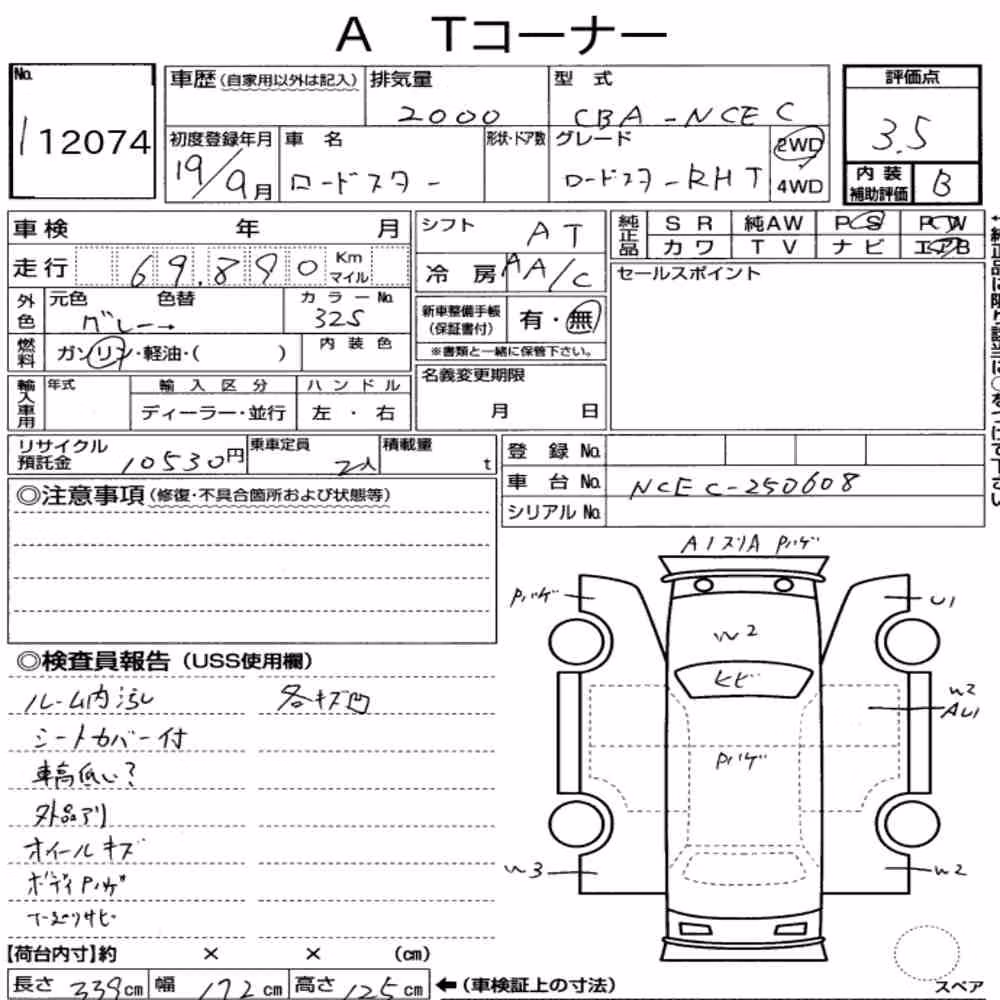 A Tコーナー
No. 車歴(自家用以外は記入) 排気量 2000 型式 CBA-NCEC 評価点 3.5
112074
初度登録年月 19/9月 車名 ロードスター 形状・ドア数 グレード ロードスターRHT 2WD 4WD
内装補助評価 B
車検 年 月 シフト AT 純正品 SR 純AW PS PW
カワ TV ナビ エアB
走行 69.890 Km マイル 冷房 AA/C セールスポイント
外色 元色 グレー 色替 カラーNo. 325 新車整備手帳(保証書付) 有・無
燃料 ガソリン・軽油・( ) 内装色 ※書類と一緒に保管下さい。
輸入車用 年式 輸入区分 ハンドル 名義変更期限
ディーラー・並行 左・右 月 日
リサイクル預託金 10530円 乗車定員 2人 積載量 t 登録No.
車台No. NCEC-250608
シリアルNo.
◎注意事項(修復・不具合箇所および状態等)
A1 スリA Pハゲ
Pハゲ U1
W2
ヒビ
W2
AU1
Pハゲ
W3 W2
◎検査員報告(USS使用欄)
ルーム内汚レ 各キズ凹
シートカバー付
車高低い?
外品アリ
ホイールキズ
ボディPハゲ
下廻りサビ
【荷台内寸】約 × × (cm)
長さ 339cm 幅 172cm 高さ 125cm ←(車検証上の寸法)
スペア